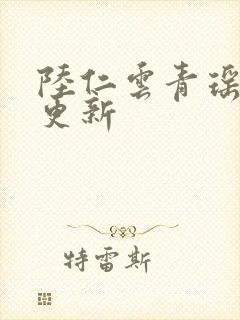 陸仁雲青瑶
更新
特雷斯